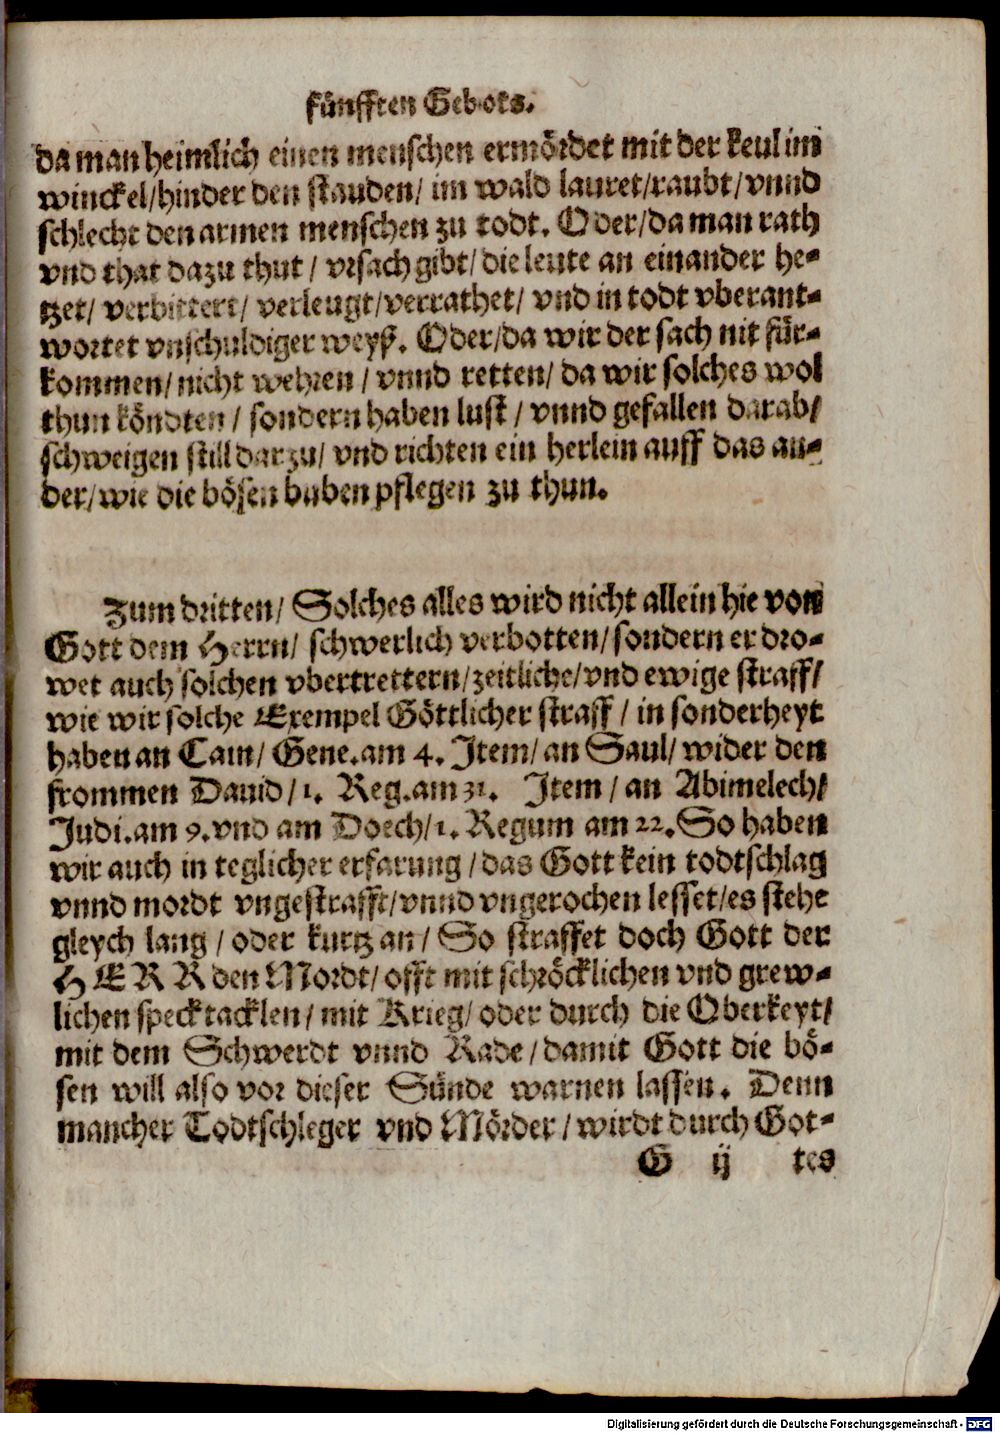 fünfften Gebots.
da man heimlich einen menschen ermördet mit der keul im
winckel/hinder den stauden/ im wald lauret/raubt/vnnd
schlecht den armen menschen zu todt. Oder/da man rath
vnd that dazu thut/ vrsach gibt/ die leute an einander he-
tzet/ verbittert/ verleugt/verrathet/ vnd in todt vberant-
wortet vnschuldiger weyß. Oder/da wir der sach nit für-
kommen/nicht wehren/ vnnd retten/ da wir solches wol
thun köndten/ sondern haben lust/ vnnd gefallen darab/
schweigen still darzu/ vnd richten ein herlein auff das an-
der/wie die bösen buben pflegen zu thun.
Zum dritten/ Solches alles wird nicht allein hie von
Gott dem Herrn/ schwerlich verbotten/sondern er dro-
wet auch solchen vbertrettern/zeitliche/vnd ewige straff/
wie wir solche Exempel Göttlicher straff/ in sonderheyt
haben an Cain/ Gene.am 4. Item/ an Saul/ wider den
frommen Dauid/1. Reg.am 31. Item/ an Abimelech/
Judi.am 9.vnd am Doech/1. Regum am 22. So haben
wir auch in teglicher erfarung/das Gott kein todtschlag
vnnd mordt vngestrafft/vnnd vngerochen lesset/es stehe
gleych lang/ oder kurtz an/ So straffet doch Gott der
HERR den Mordt/ offt mit schröcklichen vnd grew-
lichen specktacklen/ mit Krieg/ oder durch die Oberkeyt/
mit dem Schwerdt vnnd Rade/damit Gott die bö-
sen will also vor dieser Sünde warnen lassen. Denn
mancher Todtschleger vnd Mörder/wirdt durch Got-
G ij tes
Digitalisierung gefördert durch die Deutsche Forschungsgemeinschaft - DFG